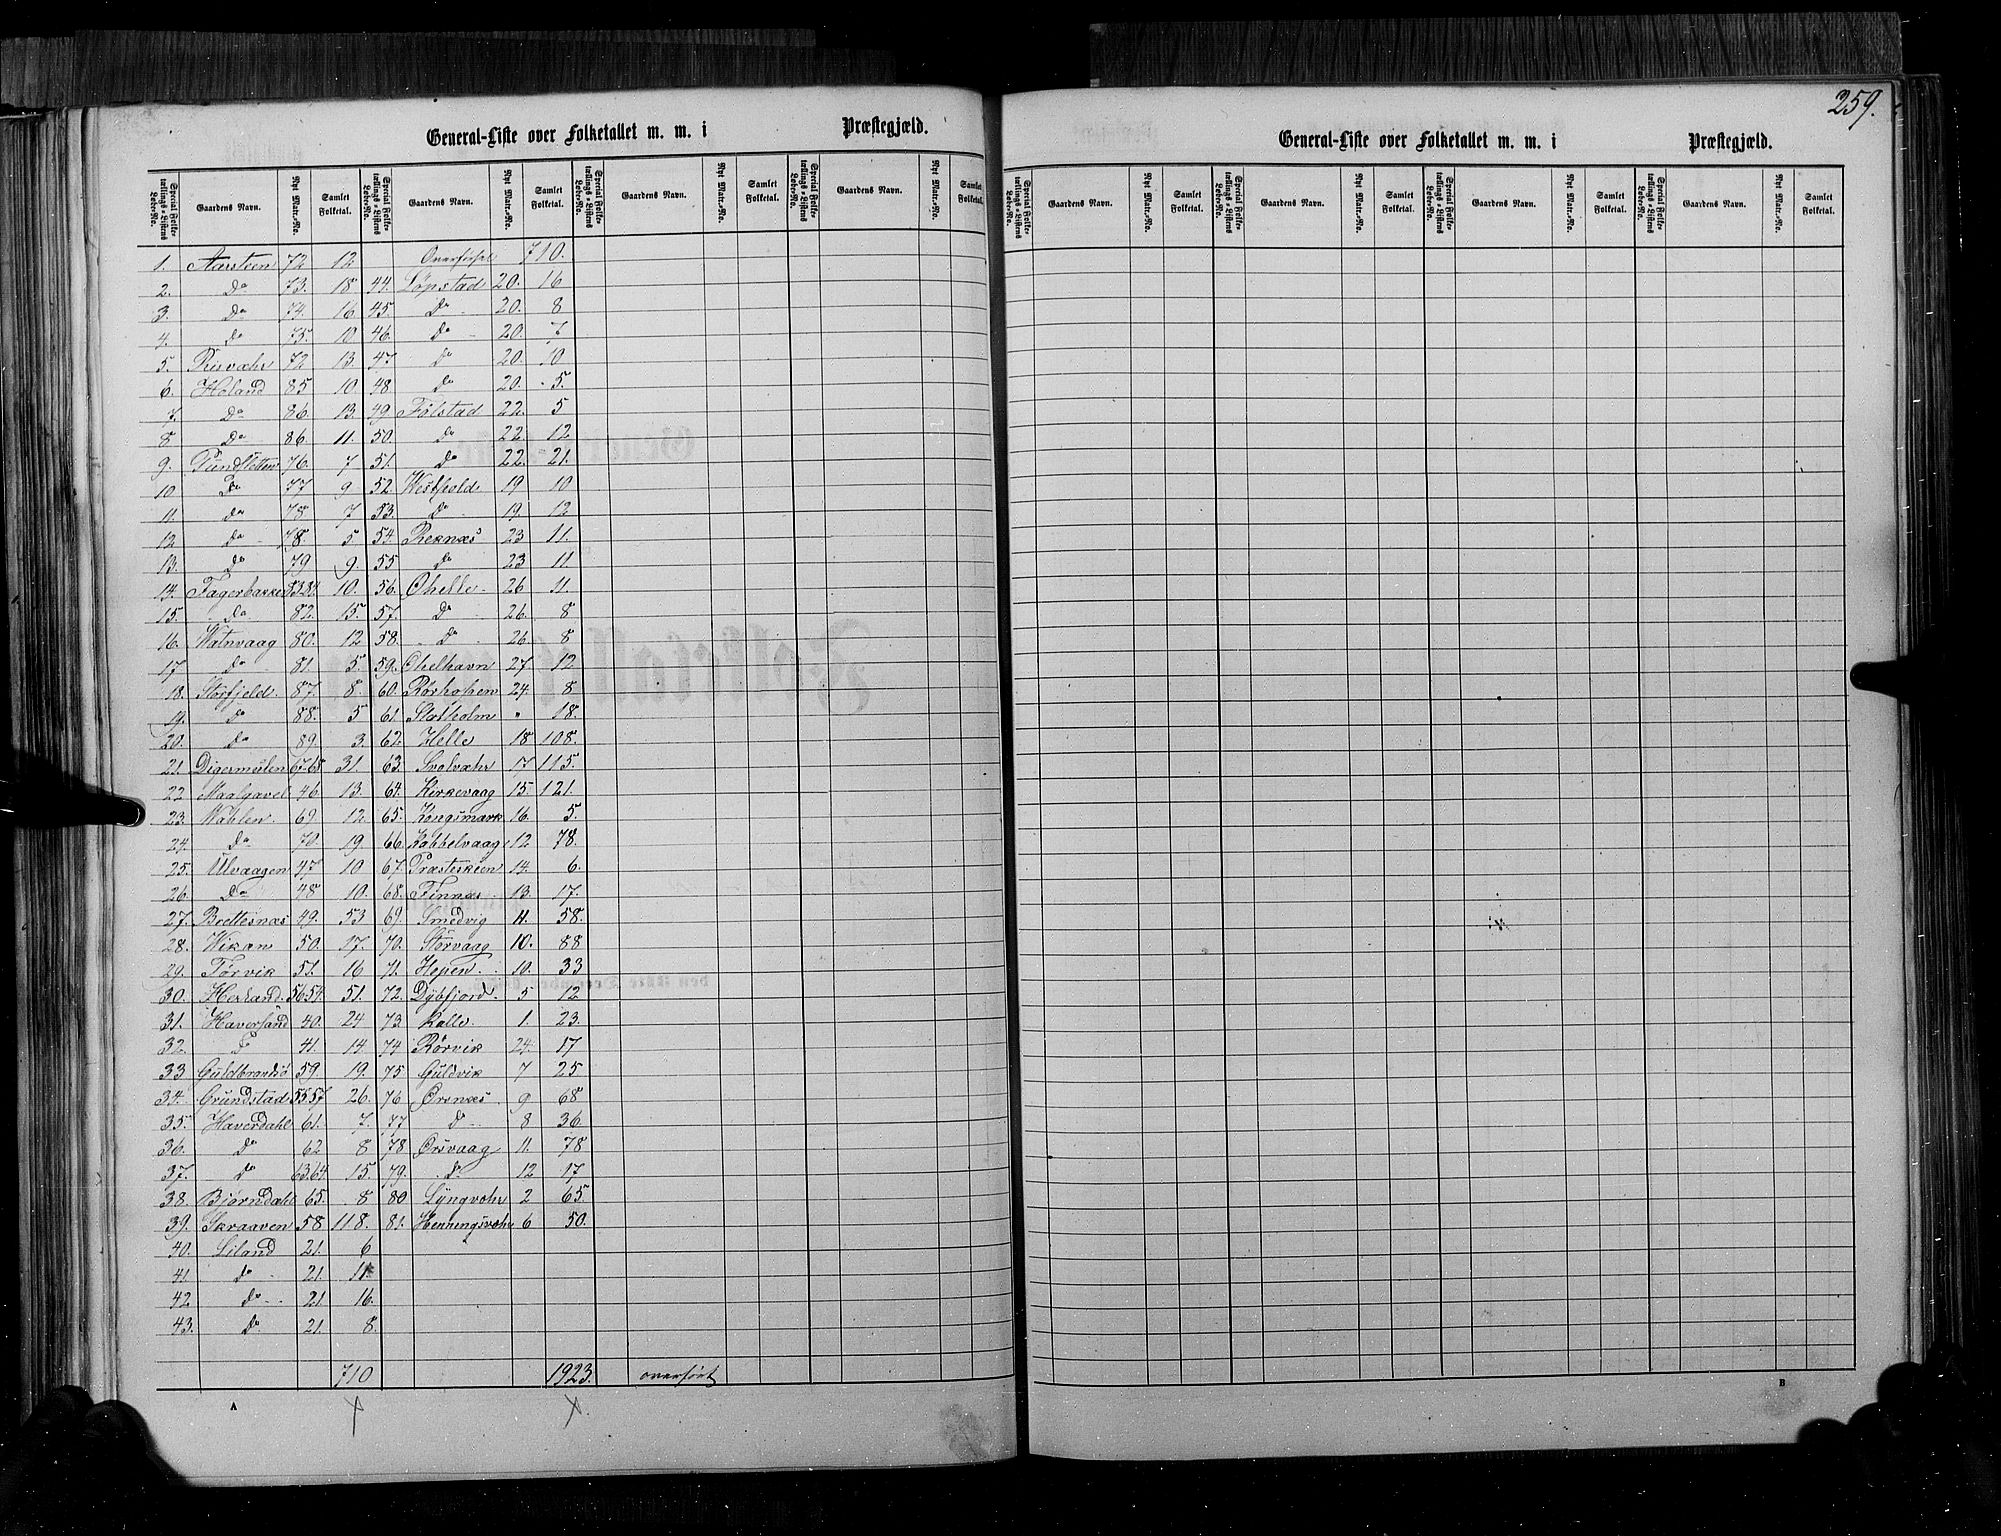 259.
General-Liste over Folketallet m. m. i Præstegjæld.
Special Folketællings-Listens Løbe-No. Gaardens Navn. Nyt Matr.-No. Samlet Folketal. Special Folketællings-Listens Løbe-No. Gaardens Navn. Nyt Matr.-No. Samlet Folketal. Special Folketællings-Listens Løbe-No. Gaardens Navn. Nyt Matr.-No. Samlet Folketal. Special Folketællings-Listens Løbe-No. Gaardens Navn. Nyt Matr.-No. Samlet Folketal.
1. Aarsteen 72 12 710.
2. Do 73. 18 44. Löpstad 20. 16
3. Do 74. 16 45. Do 20. 8
4. do 75. 10 46. do 20. 7
5. Risvæhr 72 13. 47 do 20. 10
6. Holand 85 10 48 do 20. 5.
7. Do 86. 13. 49 Fölstad 22. 5
8 Do 86. 11. 50. do 22. 12
9. 76. 7 51. do 22. 21.
10 Do 77 9 52. Westpold 19 10
11. do 78. 7 53. do 19. 12
12 do 78. 5 54. Reknæs 23 11.
13. do 79 9. 55 do 23 11
14. Fagerbakke 10. 56. Ohelle 26 11.
15. do 82. 15. 57. D 26. 8
16. Watnvaag 80. 12 58. do 26. 8
17 do 81. 5. 59. Ohelhavn 27 12
18. Storfjeld 87. 8. 60. Rörhopen 24. 8
19. do 88. 5 61. Skotholm " 18.
20. do 89. 3. 62. Helle 18 108.
21. Digermulen 67-68 31. 63. Svolvæhr 17 115.
22 Maalgavel 46 13. 64. Kirkevaag 15. 121.
23. 69 12. 65. Kongsmark 16. 5.
24. do 70. 19. 66. Kabbelvaag 12 78.
25. Ulvaagen 47 10 67. 14. 6.
26. Do 48 10. 68. Finnæs 13 17.
27. Brettesnæs 49. 53 69. Smedvig 11. 58.
28. Wikan 50. 17. 70. Störvaag 10. 88
29. Törvik 51. 16 71. Hopen. 10. 33
30. Herland. 56.54. 51. 72. Dybfjord. 5 12
31. Haversand 40. 24 73 Kalle. 1. 23.
32. 41. 14. 74 Rörvik 24. 17
33 Guldbrandsö 59 19. 75 Guldvik 7 25
34. Grundstad 55.57. 26. 76 Örsnæs. 9 68
35. Haverdahl 61. 7. 77 do 8 36
36. do 62 8 78 Örsvaag 11. 78
37. do 63.64. 15. 79. do 12 17
38. Bjørndahl 65. 8 80 Lyngvæhr 2 65.
39. Skraaven 58 118. 81. Henningsvæhr 6 50.
40. Liland 21. 6
41. do 21. 11
42 do 21 16.
43. do 21. 8.
710 1923. overført
A
General-Liste over Folketallet m. m. i Præstegjæld.
Special Folketællings-Listens Løbe-No. Gaardens Navn. Nyt Matr.-No. Samlet Folketal. Special Folketællings-Listens Løbe-No. Gaardens Navn. Nyt Matr.-No. Samlet Folketal. Special Folketællings-Listens Løbe-No. Gaardens Navn. Nyt Matr.-No. Samlet Folketal. Special Folketællings-Listens Løbe-No. Gaardens Navn. Nyt Matr.-No. Samlet Folketal.
B